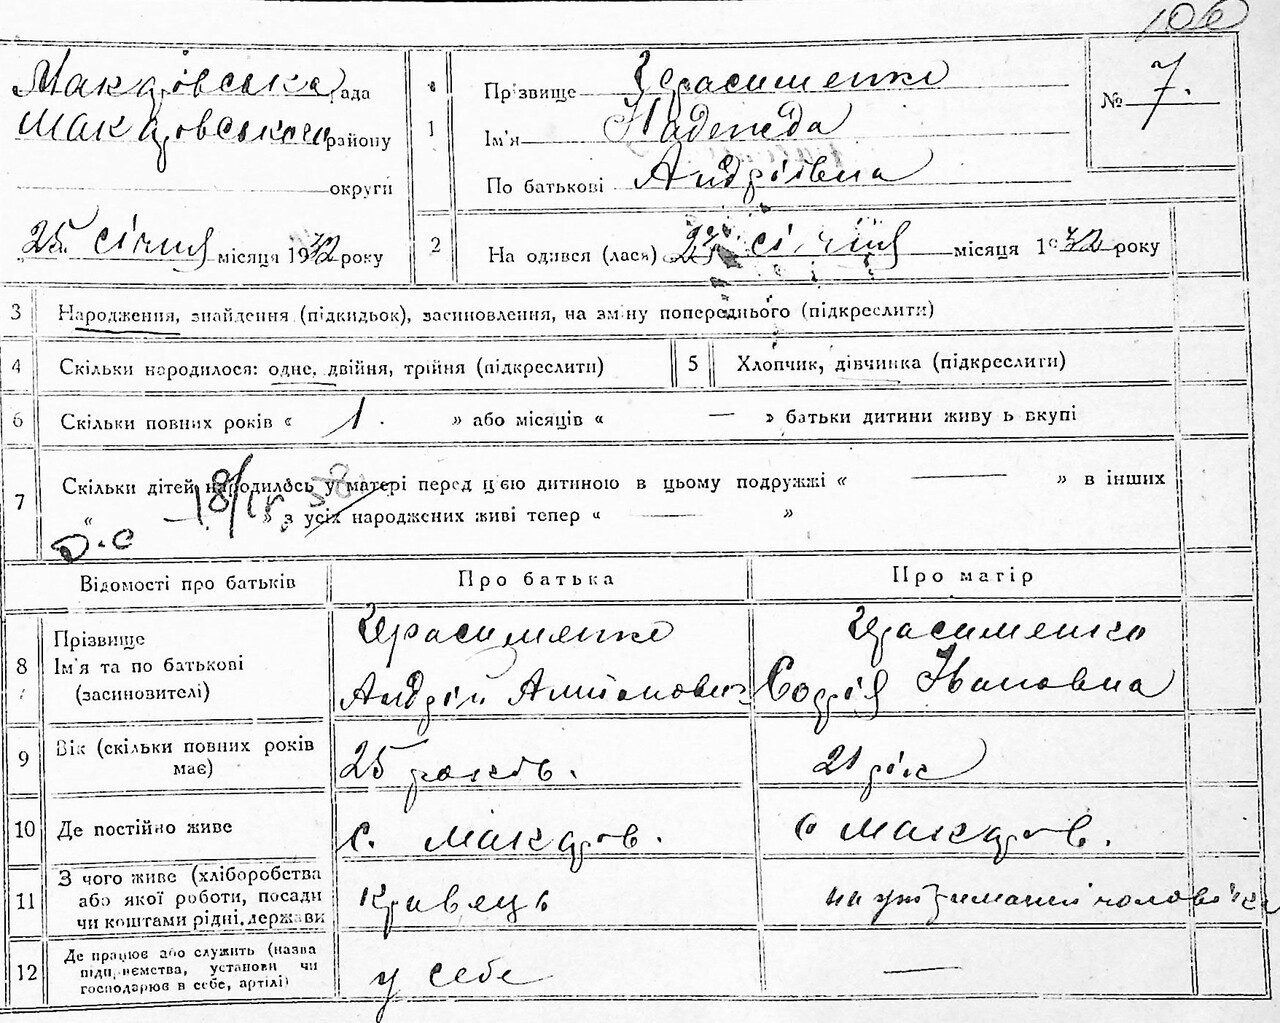 106
Макарівська рада
Макарівського району
округи
25 січня місяця 1932 року
1
Прізвище Герасименко
Ім'я Надежда
По батькові Андріївна
№ 7.
2
На одився (лася) січня місяця 1932 року
3 Народження, знайдення (підкидьок), засиновлення, на зміну попереднього (підкреслити)
4 Скільки народилося: одне, двійня, трійня (підкреслити)
5 Хлопчик, дівчинка (підкреслити)
6 Скільки повних років « 1. » або місяців « — » батьки дитини живу ь вкупі
7 Скільки дітей народилось у матері перед цією дитиною в цьому подружжі « — » в інших
« — » з усіх народжених живі тепер « — »
Відомості про батьків Про батька Про матір
8 Прізвище Ім'я та по батькові (засиновителі)
Герасименко Андрій Антонович
Герасименко Софія Івановна
9 Вік (скільки повних років має) 25 років. 21 рік
10 Де постійно живе с. Макарів. с Макарів.
11 З чого живе (хліборобства або якої роботи, посади чи коштами рідні, держави
Кравець на утриманні чоловіка
12 Де працює або служить (назва підприємства, установи чи господарює в себе, артілі)
у себе —